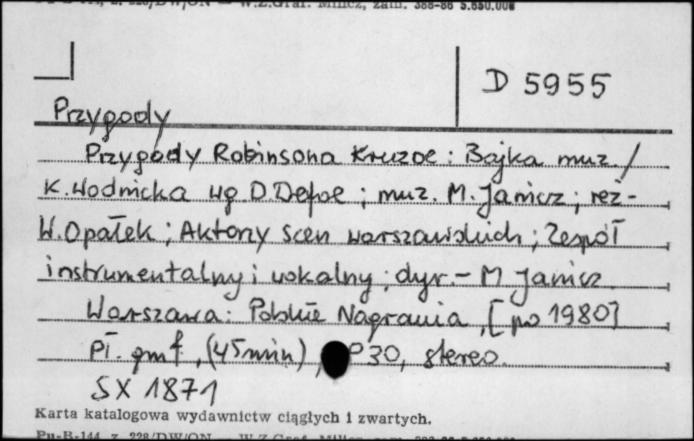 W.Z.Graf. Milicz, zam. 388-86 5.650.000
D 5955
Przygody
Przygody Robinsona Kruzoe : Bajka muz. /
K. Wodnicka wg D. Defoe ; muz. M. Janicz ; reż.-
W. Opałek ; Aktorzy scen warszawskich ; Zespół
instrumentalny i wokalny ; dyr. - M Janicz.
Warszawa : Polskie Nagrania, [po 1980]
Pł. gmf, (45 min), P 30, stereo.
SX 1871
Karta katalogowa wydawnictw ciągłych i zwartych.
Pu-B-144, z. 228/DW/ON — W.Z.Graf. Milicz, zam.